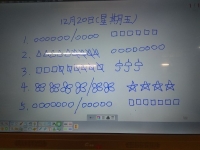 12月20日(星期五)
1.
2.
3.
4.
5.